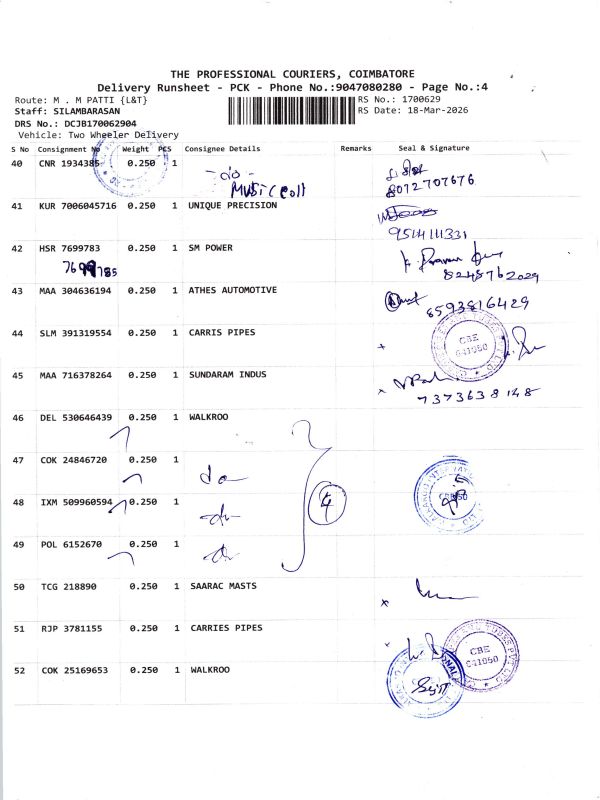 THE PROFESSIONAL COURIERS, COIMBATORE
Delivery Runsheet - PCK - Phone No.:9047080280 - Page No.:4
Route: M . M PATTI {L&T}
RS No.: 1700629
Staff: SILAMBARASAN
RS Date: 18-Mar-2026
DRS No.: DCJB170062904
Vehicle: Two Wheeler Delivery
S No Consignment No Weight PCS Consignee Details Remarks Seal & Signature
40 CNR 1934385 0.250 1 -do-
MUSIC coll
8072707676
41 KUR 7006045716 0.250 1 UNIQUE PRECISION
9514111331
42 HSR 7699783 0.250 1 SM POWER
7699785
8248762029
43 MAA 304636194 0.250 1 ATHES AUTOMOTIVE
8593816429
44 SLM 391319554 0.250 1 CARRIS PIPES
CBE
641050
45 MAA 716378264 0.250 1 SUNDARAM INDUS
7373638148
46 DEL 530646439 0.250 1 WALKROO
47 COK 24846720 0.250 1 do
48 IXM 509960594 0.250 1 do 4
49 POL 6152670 0.250 1 do
50 TCG 218890 0.250 1 SAARAC MASTS
51 RJP 3781155 0.250 1 CARRIES PIPES
CBE
641050
52 COK 25169653 0.250 1 WALKROO